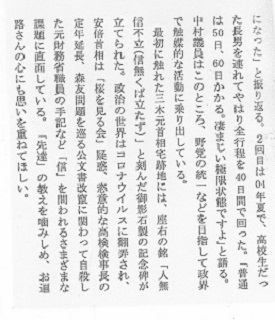 になった」と振り返る。2回目は04年夏で、高校生だっ
た長男を連れてやはり全行程を40日間で回った。「普通
は50日、60日かかる。凄まじい極限状態ですよ」と語る。
中村議員はこのところ、野党の統一などを目指して政界
で触媒的な活動に乗り出している。
最初に触れた三木元首相宅跡地には、座右の銘「人無
信不立(信無くば立たず)」と刻んだ御影石製の記念碑が
立てられた。政治の世界はコロナウイルスに翻弄され、
安倍首相は「桜を見る会」疑惑、恣意的な高検検事長の
定年延長、森友問題を巡る公文書改竄に関わって自殺し
た元財務省職員の手記など「信」を問われるさまざまな
課題に直面している。『先達』の教えを噛みしめ、お遍
路さんの心にも思いを重ねてほしい。